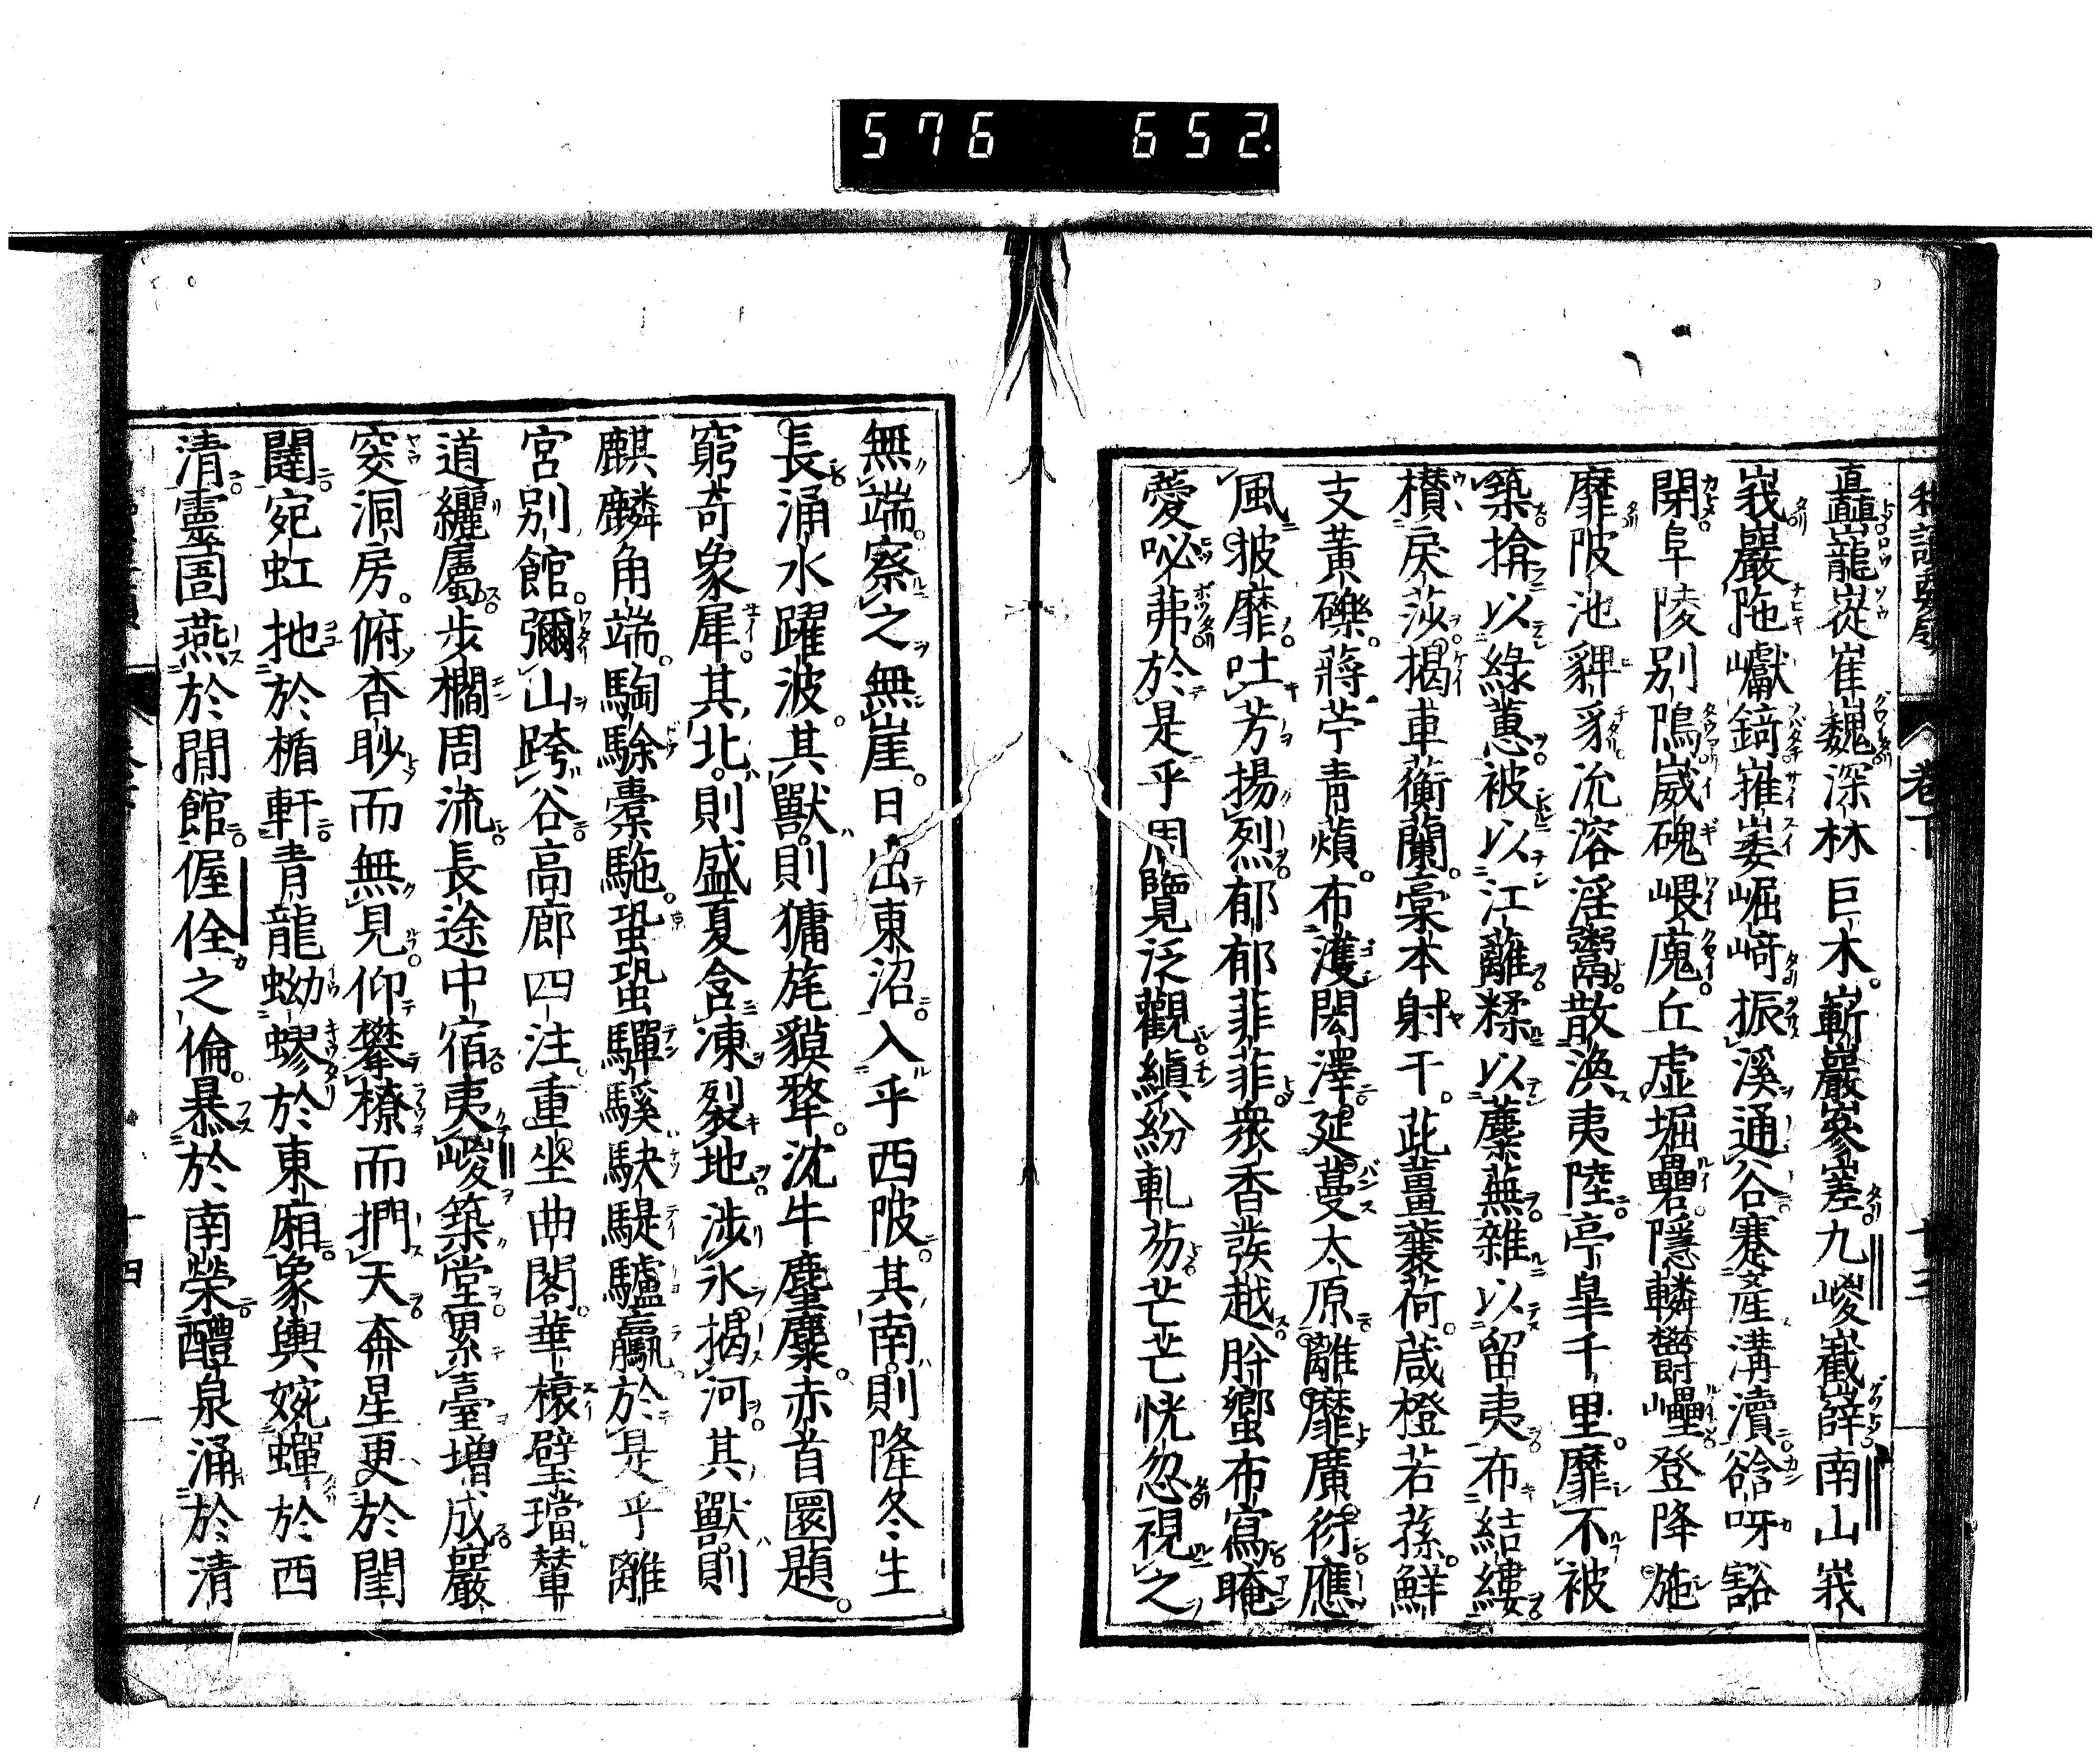 576 652.
巻下
矗巃嵸崔巍深林巨木嶄巖㟥嵳九嵕嶻嶭南山峩
峩巖陁甗錡嶊崣崛崎振溪通谷蹇產溝瀆谽呀豁
閉阜陵別隝崴磈㟪廆丘虛堀礨隱轔鬱㠥登降施
靡陂池貏豸沇溶淫鬻散渙夷陸亭皐千里靡不被
築揜以綠蕙被以江蘺糅以蘪蕪雜以留夷布結縷
欑戾莎揭車蘅蘭槀本射干茈薑蘘荷葴橙若蓀鮮
支黃礫蔣苧青薠布濩閎澤延蔓太原離靡廣衍應
風披靡吐芳揚烈郁郁菲菲衆香發越肸蠁布寫晻
薆咇茀於是乎周覽泛觀縝紛軋芴芒芒恍忽視之
無端察之無崖日出東沼入乎西陂其南則隆冬生
長涌水躍波其獸則㺎旄貘犛沈牛麈麋赤首圜題
窮奇象犀其北則盛夏含凍裂地涉氷揭河其獸則
麒麟角端騊駼橐駞蛩蛩驒騱駃騠驢驘於是乎離
宮別館彌山跨谷高廊四注重坐曲閣華榱璧璫輦
道纚屬步櫩周流長途中宿夷嵕築堂累臺增成巖
窔洞房俯杳眇而無見仰攀橑而捫天奔星更於閨
闥宛虹扡於楯軒青龍蚴蟉於東廂象輿婉蟬於西
清靈圄燕於閒館偓佺之倫暴於南榮醴泉涌於清